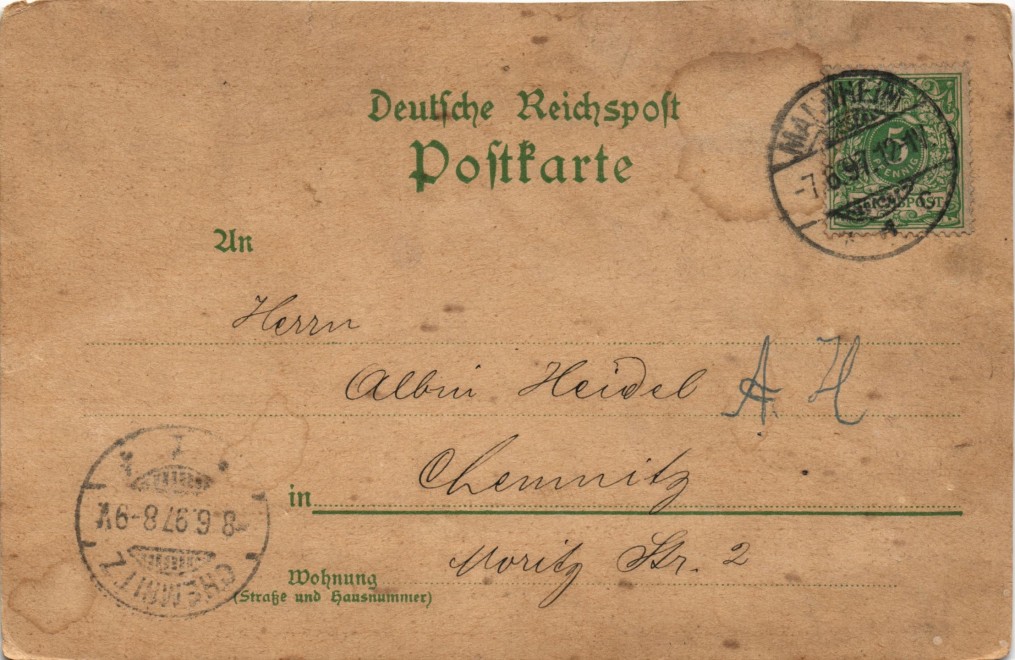 Deutsche Reichspost
Postkarte
MANNHEIM
-7.6.97.12-1N
5
PFENNIG
REICHSPOST
An
Herrn
Albin Heidel A H
in Chemnitz
Moritz Str. 2
Wohnung
(Straße und Hausnummer)
1
8.6.97 8-9V.
CHEMNITZ